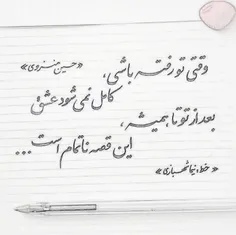 وقتی تو رفته باشی،
«حسین منزوی»
کامل نمی شود عشق
بعد از تو تا همیشه،
این قصه ناتمام است...
«خط: نیما شهسواری»